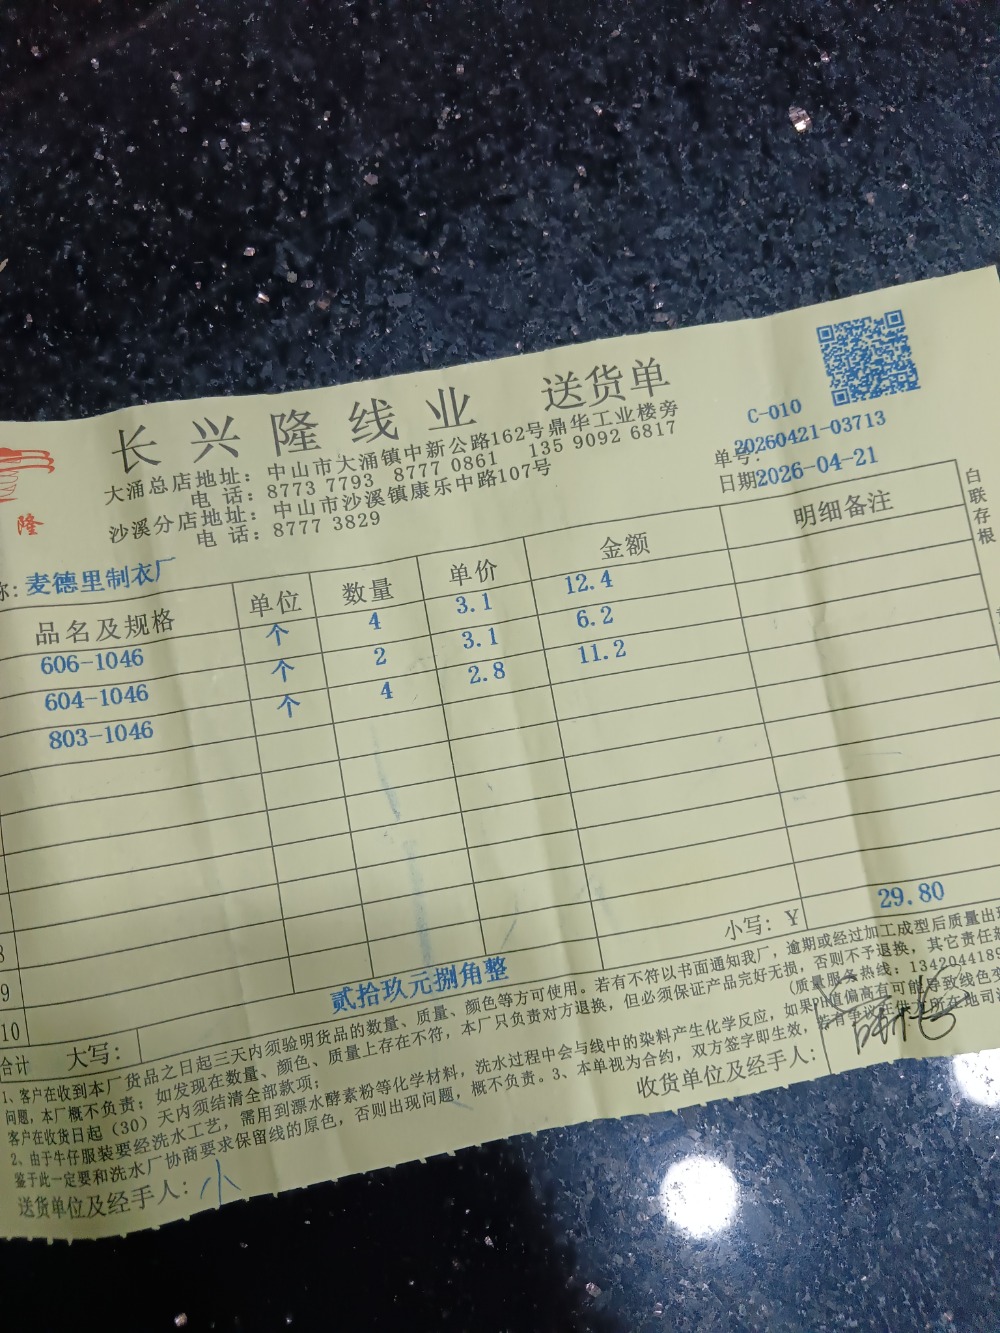 长兴隆线业 送货单
大涌总店地址：中山市大涌镇中新公路162号鼎华工业楼旁
电 话：8773 7793 8777 0861 135 9092 6817
沙溪分店地址：中山市沙溪镇康乐中路107号
电 话：8777 3829
C-010
单号：20260421-03713
日期2026-04-21
隆
白联存根
称：麦德里制衣厂
品名及规格 单位 数量 单价 金额 明细备注
606-1046 个 4 3.1 12.4
604-1046 个 2 3.1 6.2
803-1046 个 4 2.8 11.2
8
9
10
合计 大写： 贰拾玖元捌角整 小写：¥ 29.80
1、客户在收到本厂货品之日起三天内须验明货品的数量、质量、颜色等方可使用。若有不符以书面通知我厂，逾期或经过加工成型后质量出现
问题，本厂概不负责；如发现在数量、颜色、质量上存在不符，本厂只负责对方退换，但必须保证产品完好无损，否则不予退换，其它责任
客户在收货日起（30）天内须结清全部款项；
(质量服务热线：1342044189
2、由于牛仔服装要经洗水工艺，需用到漂水酵素粉等化学材料，洗水过程中会与线中的染料产生化学反应，如果PH值偏高有可能导致线色变
鉴于此一定要和洗水厂协商要求保留线的原色，否则出现问题，概不负责。3、本单视为合约，双方签字即生效，若有争议在供方所在地司
送货单位及经手人：小
收货单位及经手人：